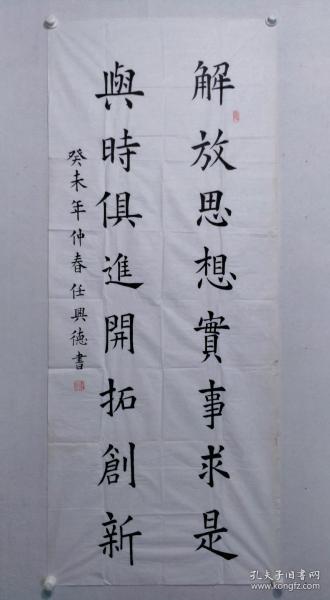 解放思想實事求是
與時俱進開拓創新
癸未年仲春任興德書
孔夫子旧书网